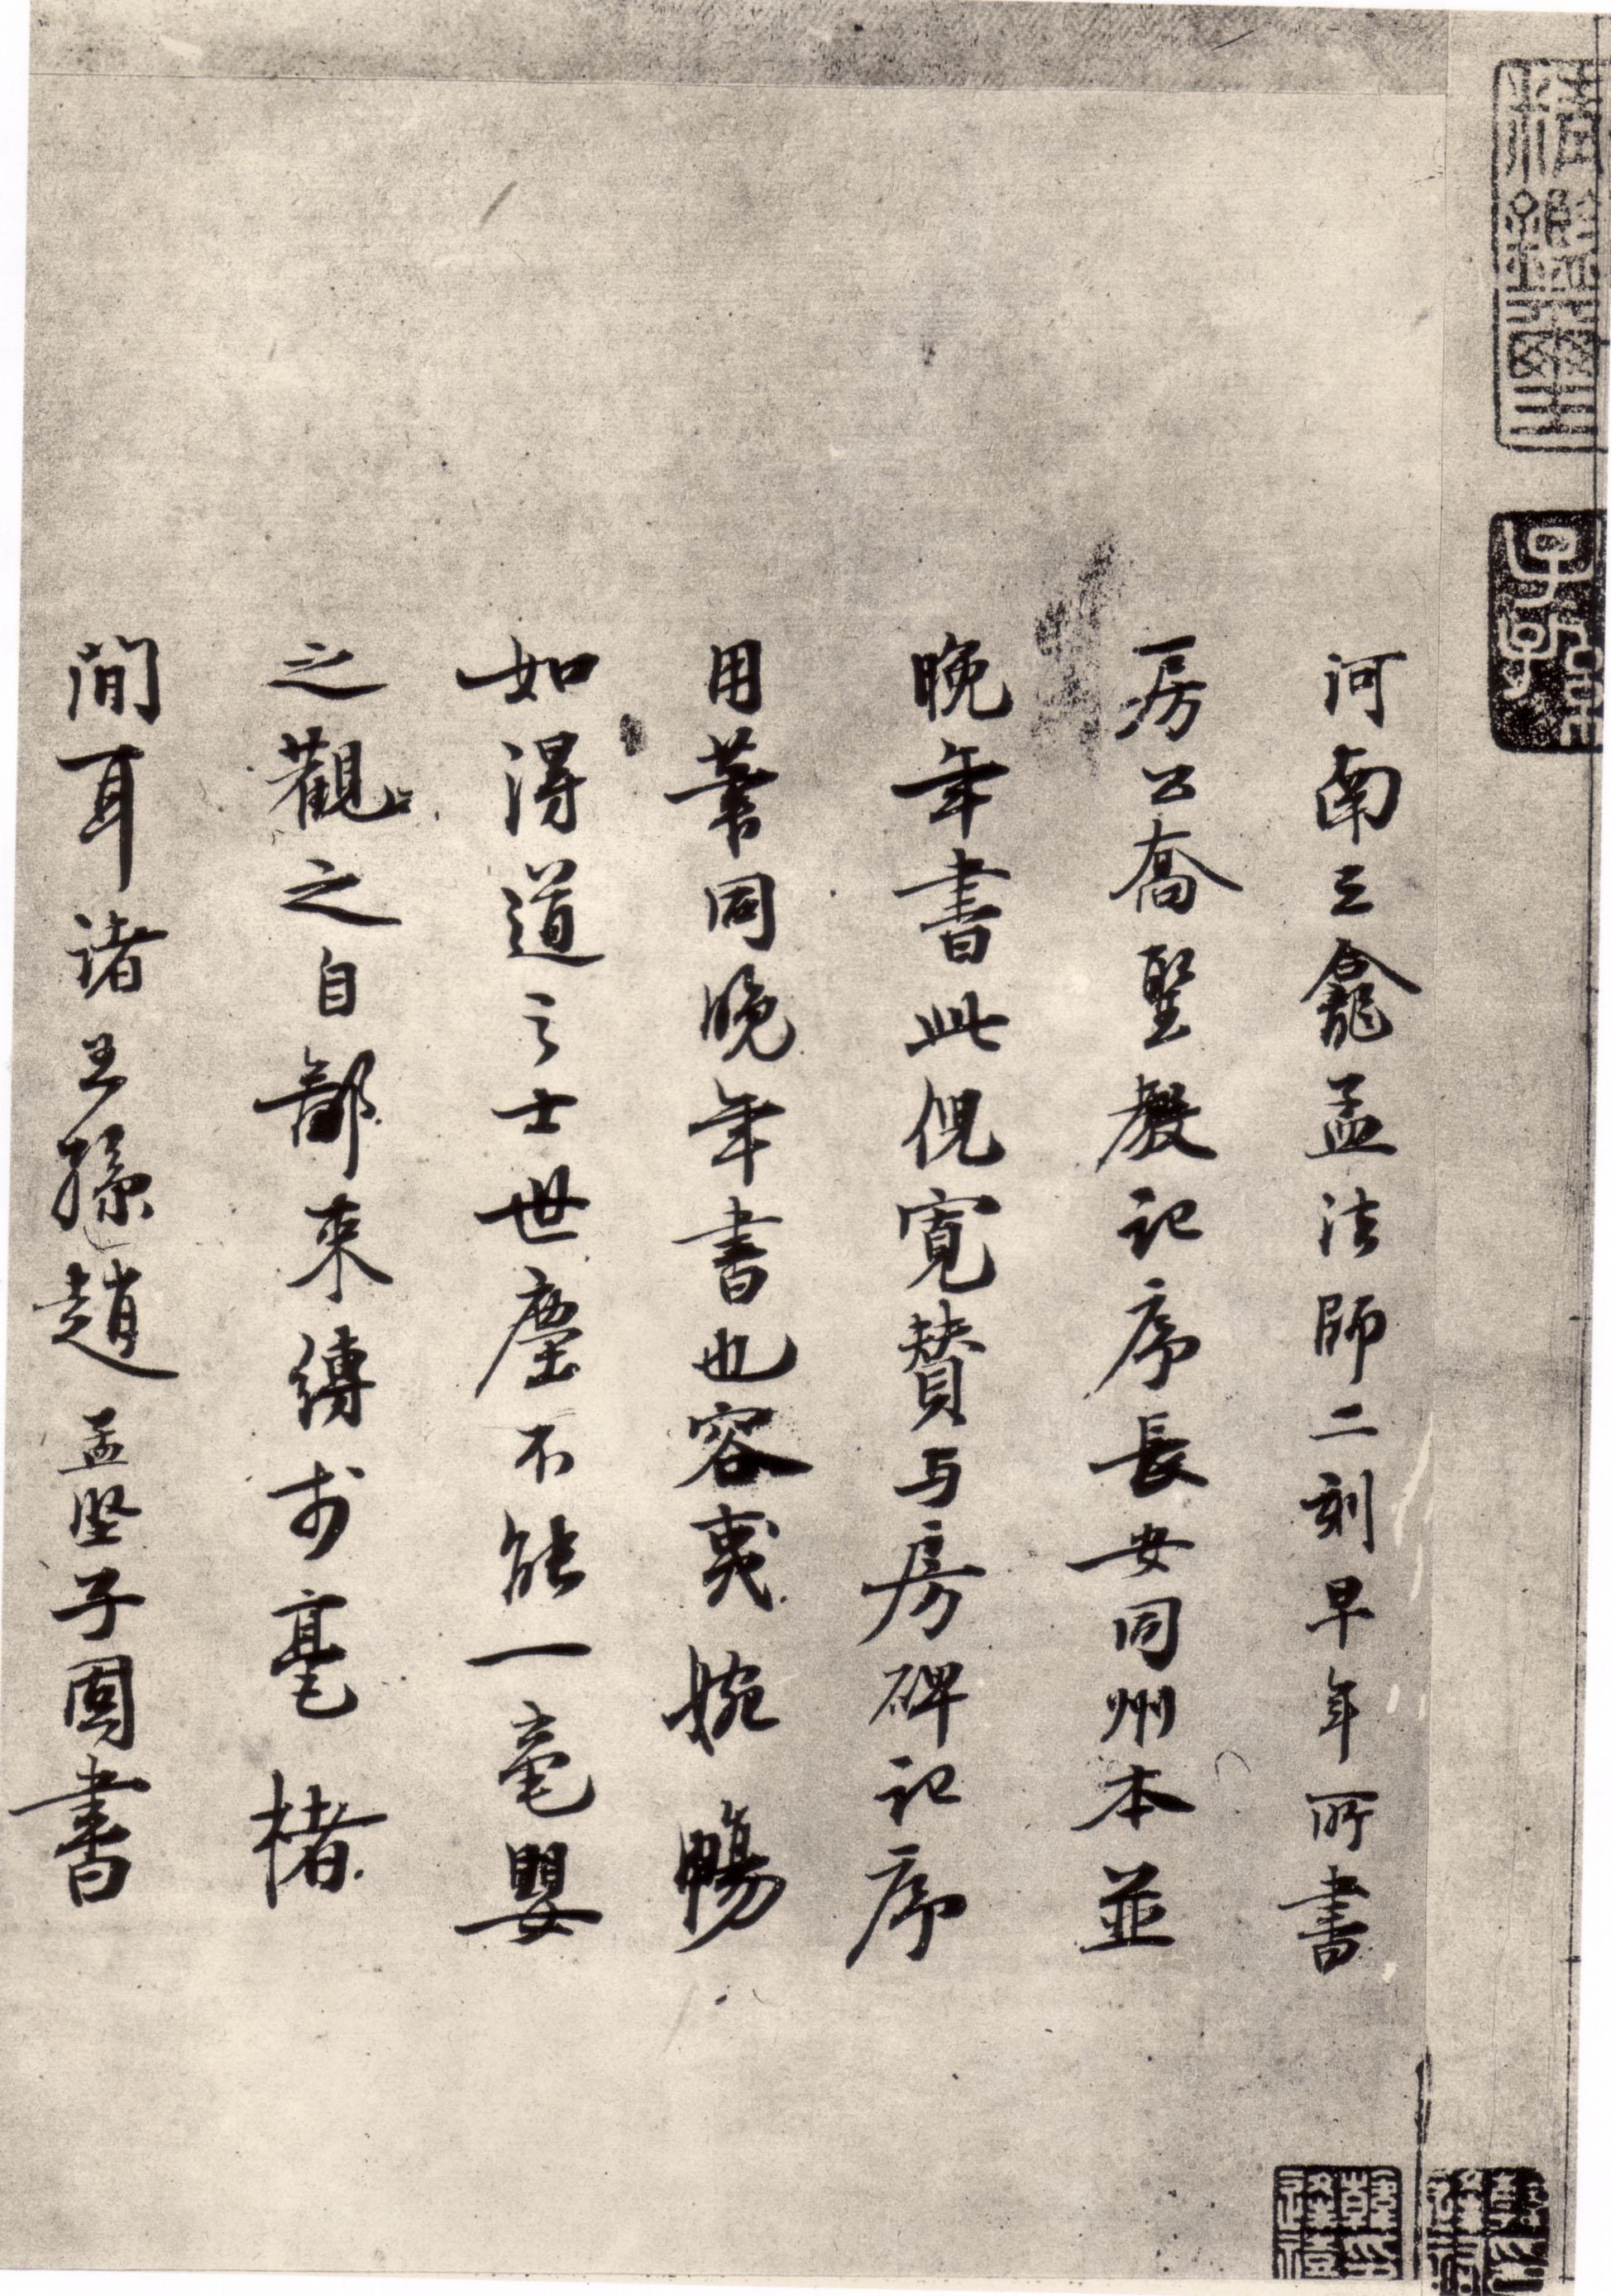 精鑑璽
宜子孫
河南三龕孟法師二刻早年所書
房公喬聖教記序長安同州本並
晚年書此倪寬賛与房碑記序
用筆同晚年書也容夷婉暢
如得道之士世塵不能一毫嬰
之觀之自鄙束縛於毫楮
間耳諸王孫趙孟堅子固書